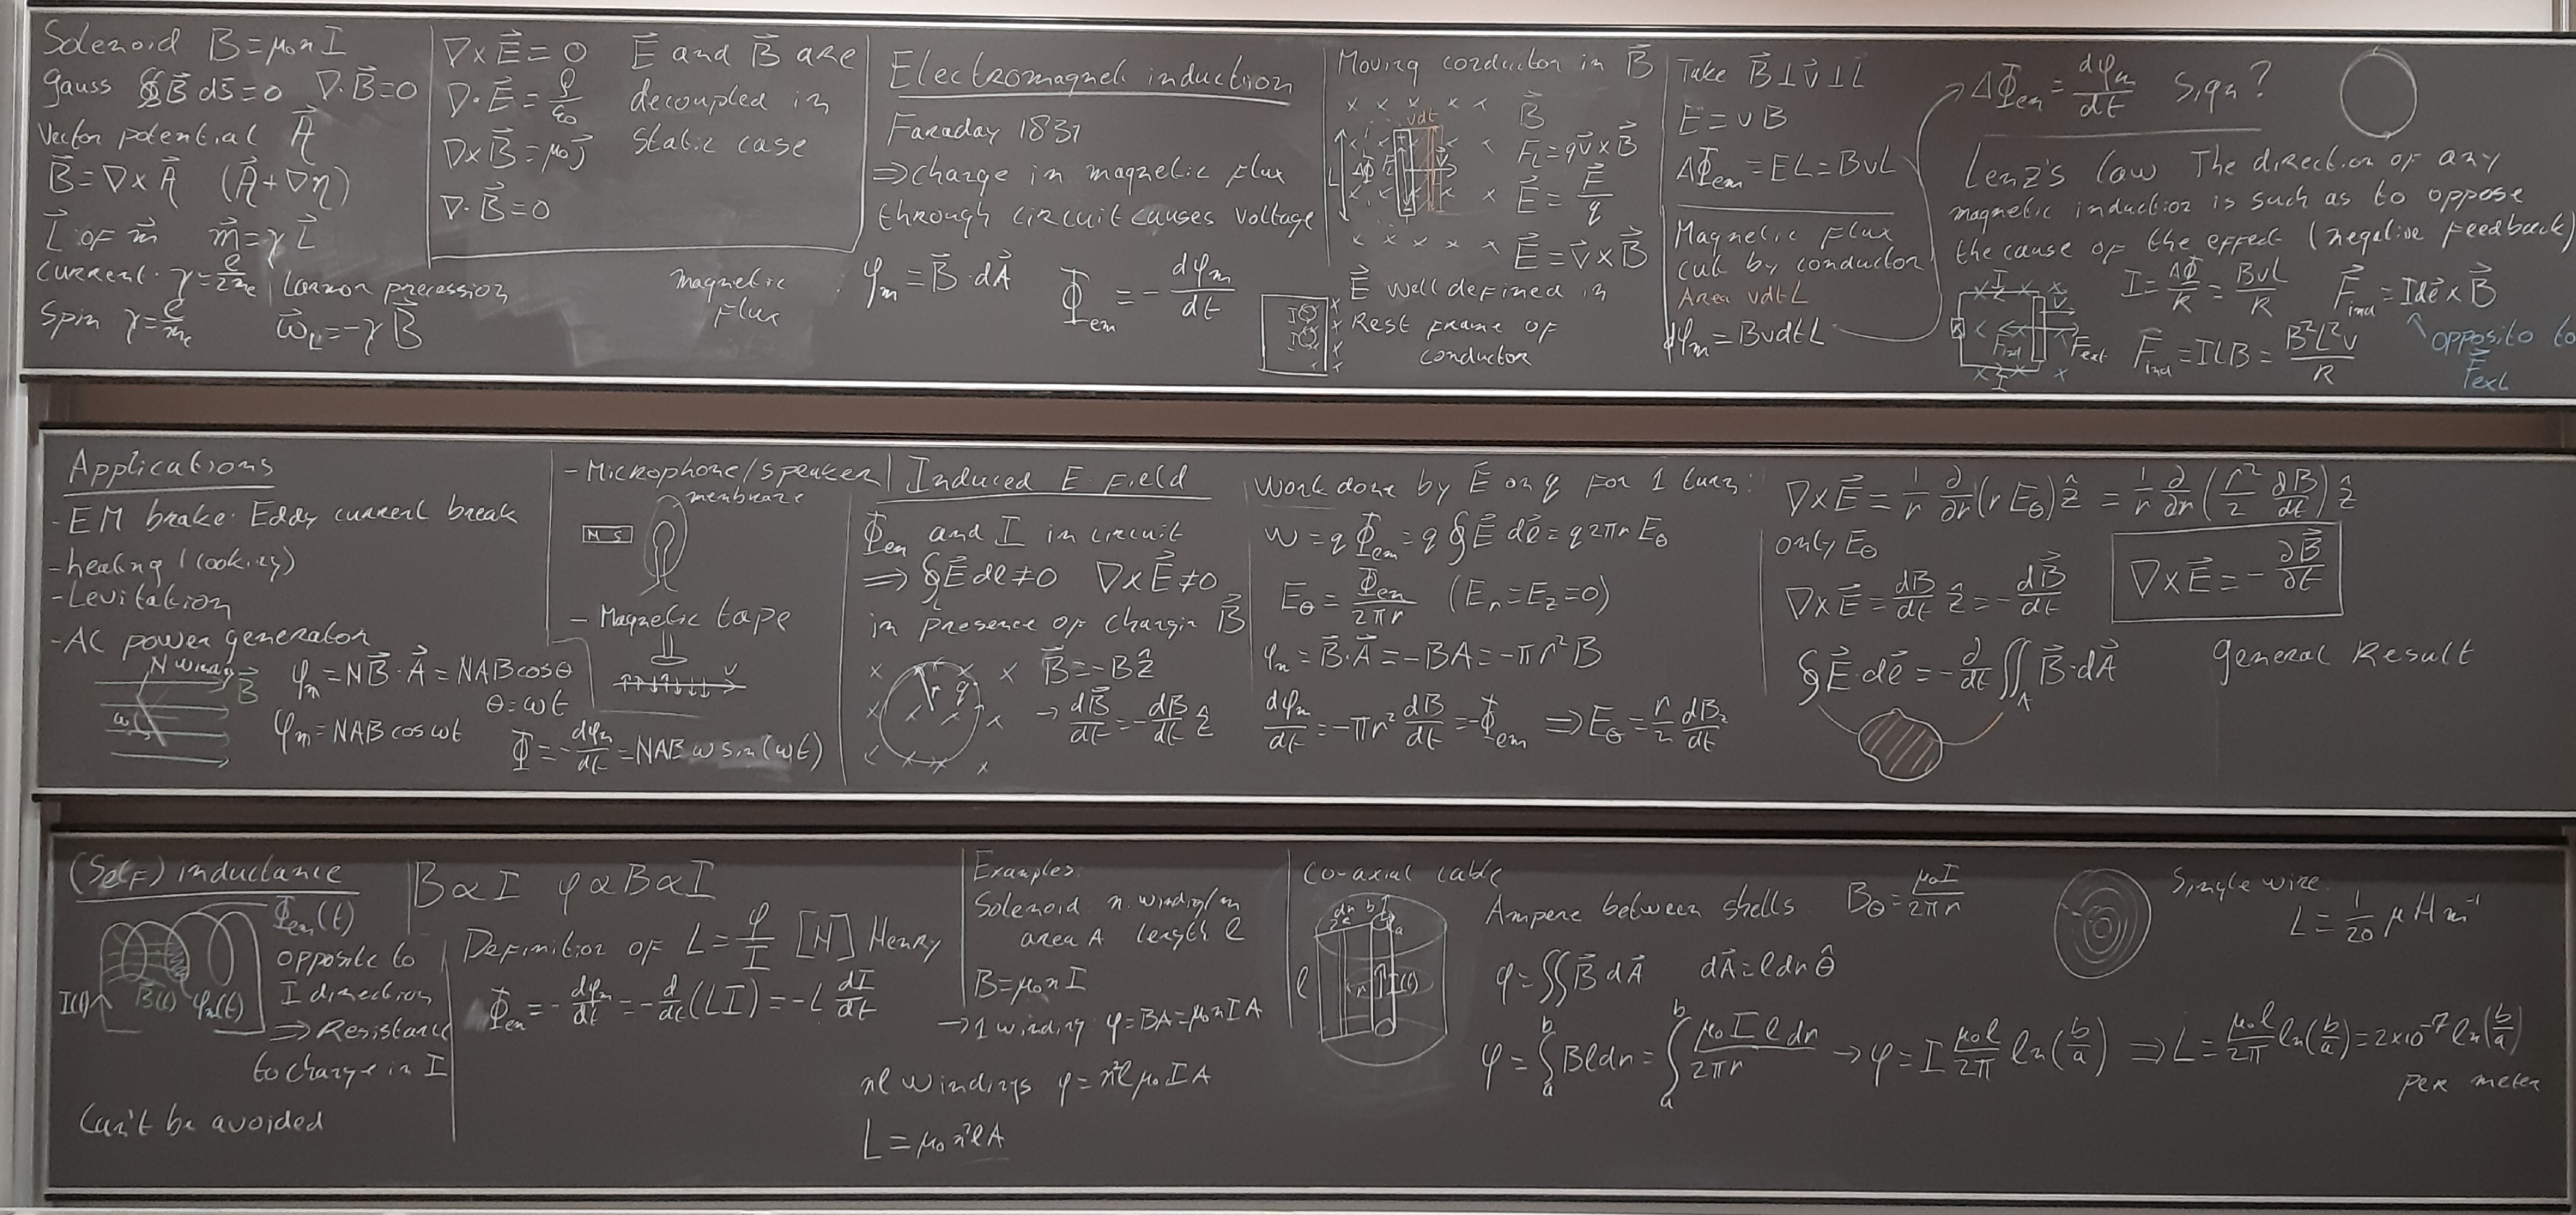 Solenoid B=μ₀nI
Gauss ∯B⃗ ds⃗=0 ∇·B⃗=0
Vector potential A⃗
B⃗=∇×A⃗ (A⃗+∇η)
L⃗ of m⃗ m⃗=γL⃗
Current γ=e/2mₑ Larmor precession
Spin γ=e/mₑ ω⃗_L=-γB⃗
∇×E⃗=0
∇·E⃗=ρ/ε₀
∇×B⃗=μ₀J⃗
∇·B⃗=0
E⃗ and B⃗ are
decoupled in
static case
Electromagnet. induction
Faraday 1831
⇒change in magnetic flux
through circuit causes voltage
magnetic
flux
φₘ=B⃗·dA⃗ Φ_em=-dφₘ/dt
Moving conductor in B⃗
vdt
B⃗
L ΔΦ
F_L=qv⃗×B⃗
E⃗=F⃗/q
E⃗=v⃗×B⃗
E⃗ well defined in
Rest frame of
conductor
Take B⃗⊥v⃗⊥L⃗
E=vB
ΔΦ_em=EL=BvL
Magnetic flux
cut by conductor
Area vdtL
dφₘ=BvdtL
ΔΦ_em=dφₘ/dt sign?
Lenz's law The direction of any
magnetic induction is such as to oppose
the cause of the effect (negative feedback)
I=ΔΦ/R=BvL/R F⃗_ind=Idℓ⃗×B⃗
F⃗_ind=ILB=B²L²v/R
opposite to
F⃗ext
I R v⃗ F_ind F_ext I
Applications
-EM brake. Eddy current break
-heating (cooking)
-Levitation
-AC power generator
N wind. B⃗
ω
φₘ=NB⃗·A⃗=NABcosθ
θ=ωt
φₘ=NABcosωt
Φ=-dφₘ/dt=NABωsin(ωt)
-Microphone/speaker
membrane
N S
-Magnetic tape
v
Induced E field
Φ_em and I in circuit
⇒∮E⃗dℓ≠0 ∇×E⃗≠0
in presence of changin B⃗
r q
B⃗=-Bẑ
→dB⃗/dt=-dB/dt ẑ
Work done by E⃗ on q for 1 turn:
W=qΦ_em=q∮E⃗dℓ⃗=q2πrE_θ
E_θ=Φ_em/2πr (E_r=E_z=0)
φₘ=B⃗·A⃗=-BA=-πr²B
dφₘ/dt=-πr²dB/dt=-Φ_em ⇒E_θ=r/2 dB_z/dt
∇×E⃗=1/r ∂/∂r(rE_θ)ẑ=1/r ∂/∂r(r²/2 dB/dt)ẑ
only E_θ
∇×E⃗=dB/dt ẑ=-dB⃗/dt
∇×E⃗=-∂B⃗/∂t
∮E⃗·dℓ⃗=-∂/∂t∬_A B⃗·dA⃗
General Result
(Self) inductance
Φ_em(t)
opposite to
I direction
⇒Resistance
to change in I
I(t) B(t) φₘ(t)
Can't be avoided
B∝I φ∝B∝I
Definition of L=φ/I [H] Henry
Φ_em=-dφₘ/dt=-d/dt(LI)=-L dI/dt
Examples
Solenoid n winding/m
area A length ℓ
B=μ₀nI
→1 winding φ=BA=μ₀nIA
nℓ windings φ=n²ℓμ₀IA
L=μ₀n²ℓA
Co-axial cable
dr b I a
ℓ r I(t)
Ampere between shells B_θ=μ₀I/2πr
φ=∬B⃗dA⃗ dA⃗=ℓdrθ̂
φ=∫ₐᵇBℓdr=∫ₐᵇμ₀Iℓdr/2πr→φ=I μ₀ℓ/2π ln(b/a) ⇒L=μ₀ℓ/2π ln(b/a)=2×10⁻⁷ln(b/a)
per meter
Single wire
L=1/20 μHm⁻¹